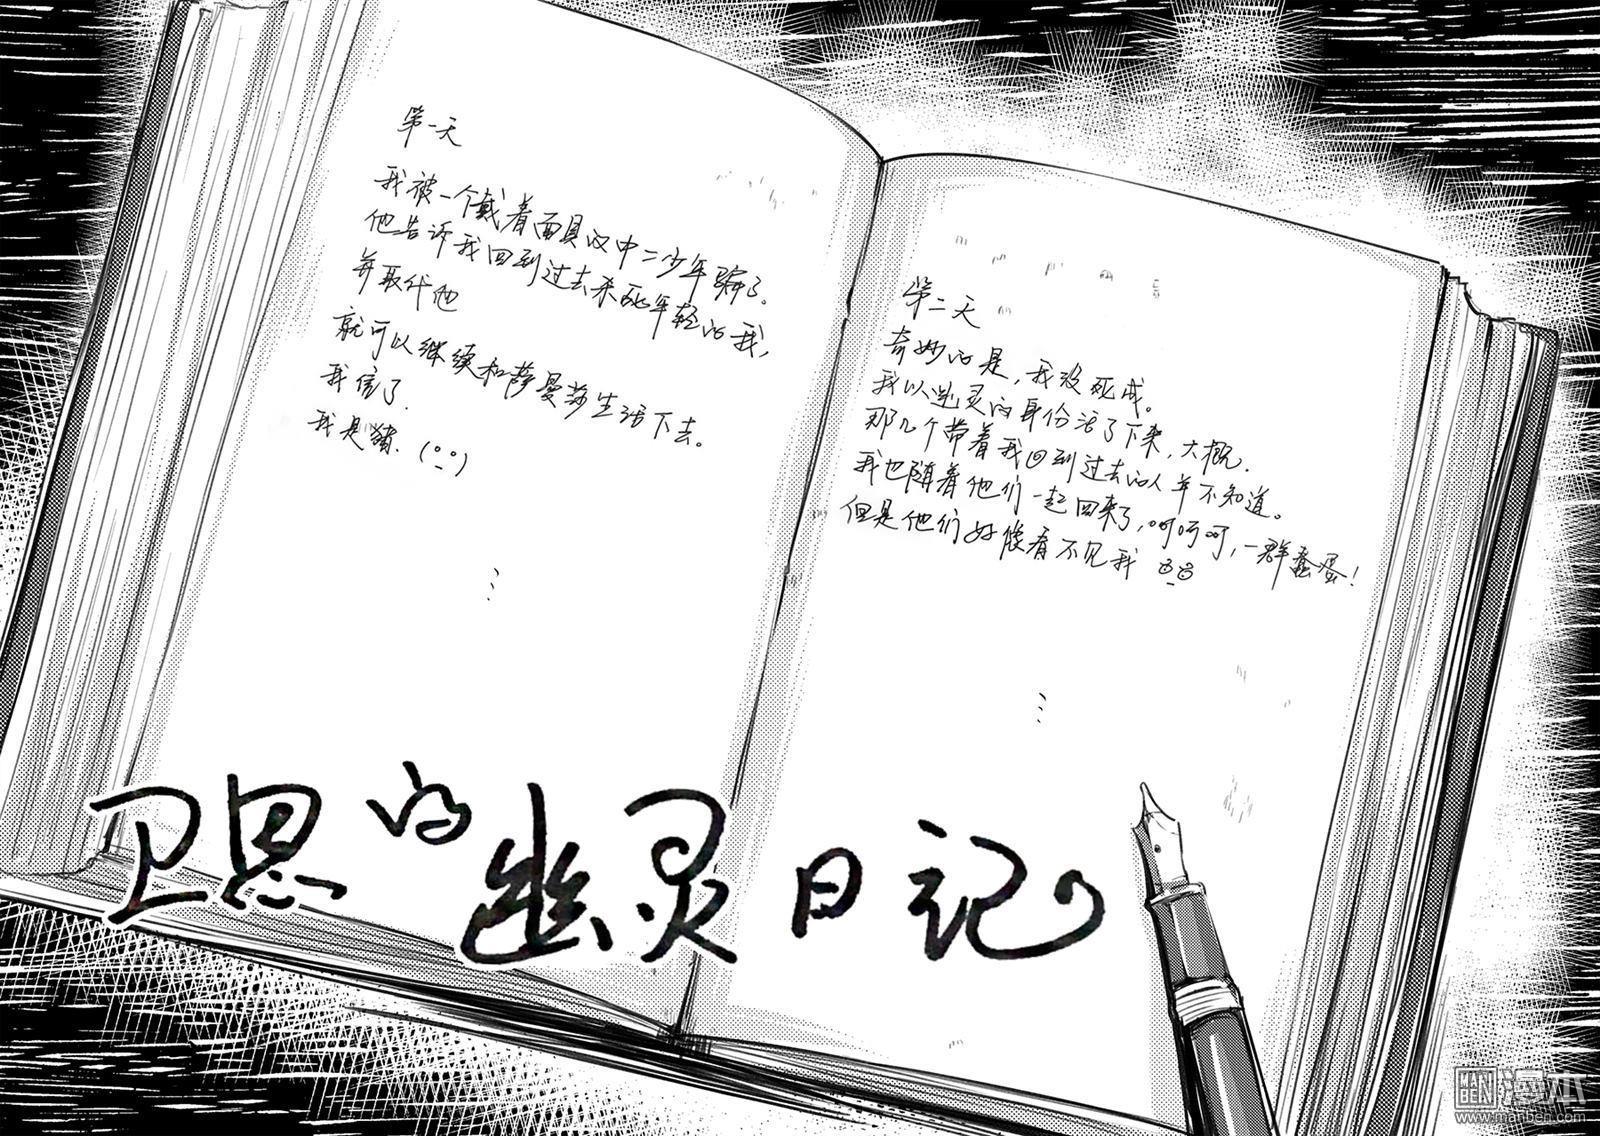 第一天
我被一个戴着面具的中二少年骗了.
他告诉我回到过去杀死年轻的我,
并取代他
就可以继续和萨曼莎生活下去。
我信了.
我是猪.
第二天
奇妙的是,我没死成。
我以幽灵的身份活了下来,大概.
那几个带着我回到过去的人并不知道。
我也随着他们一起回来了,呵呵呵,一群蠢蛋!
但是他们好像看不见我
卫思的幽灵日记
MAN BEN 漫本
www.manben.com